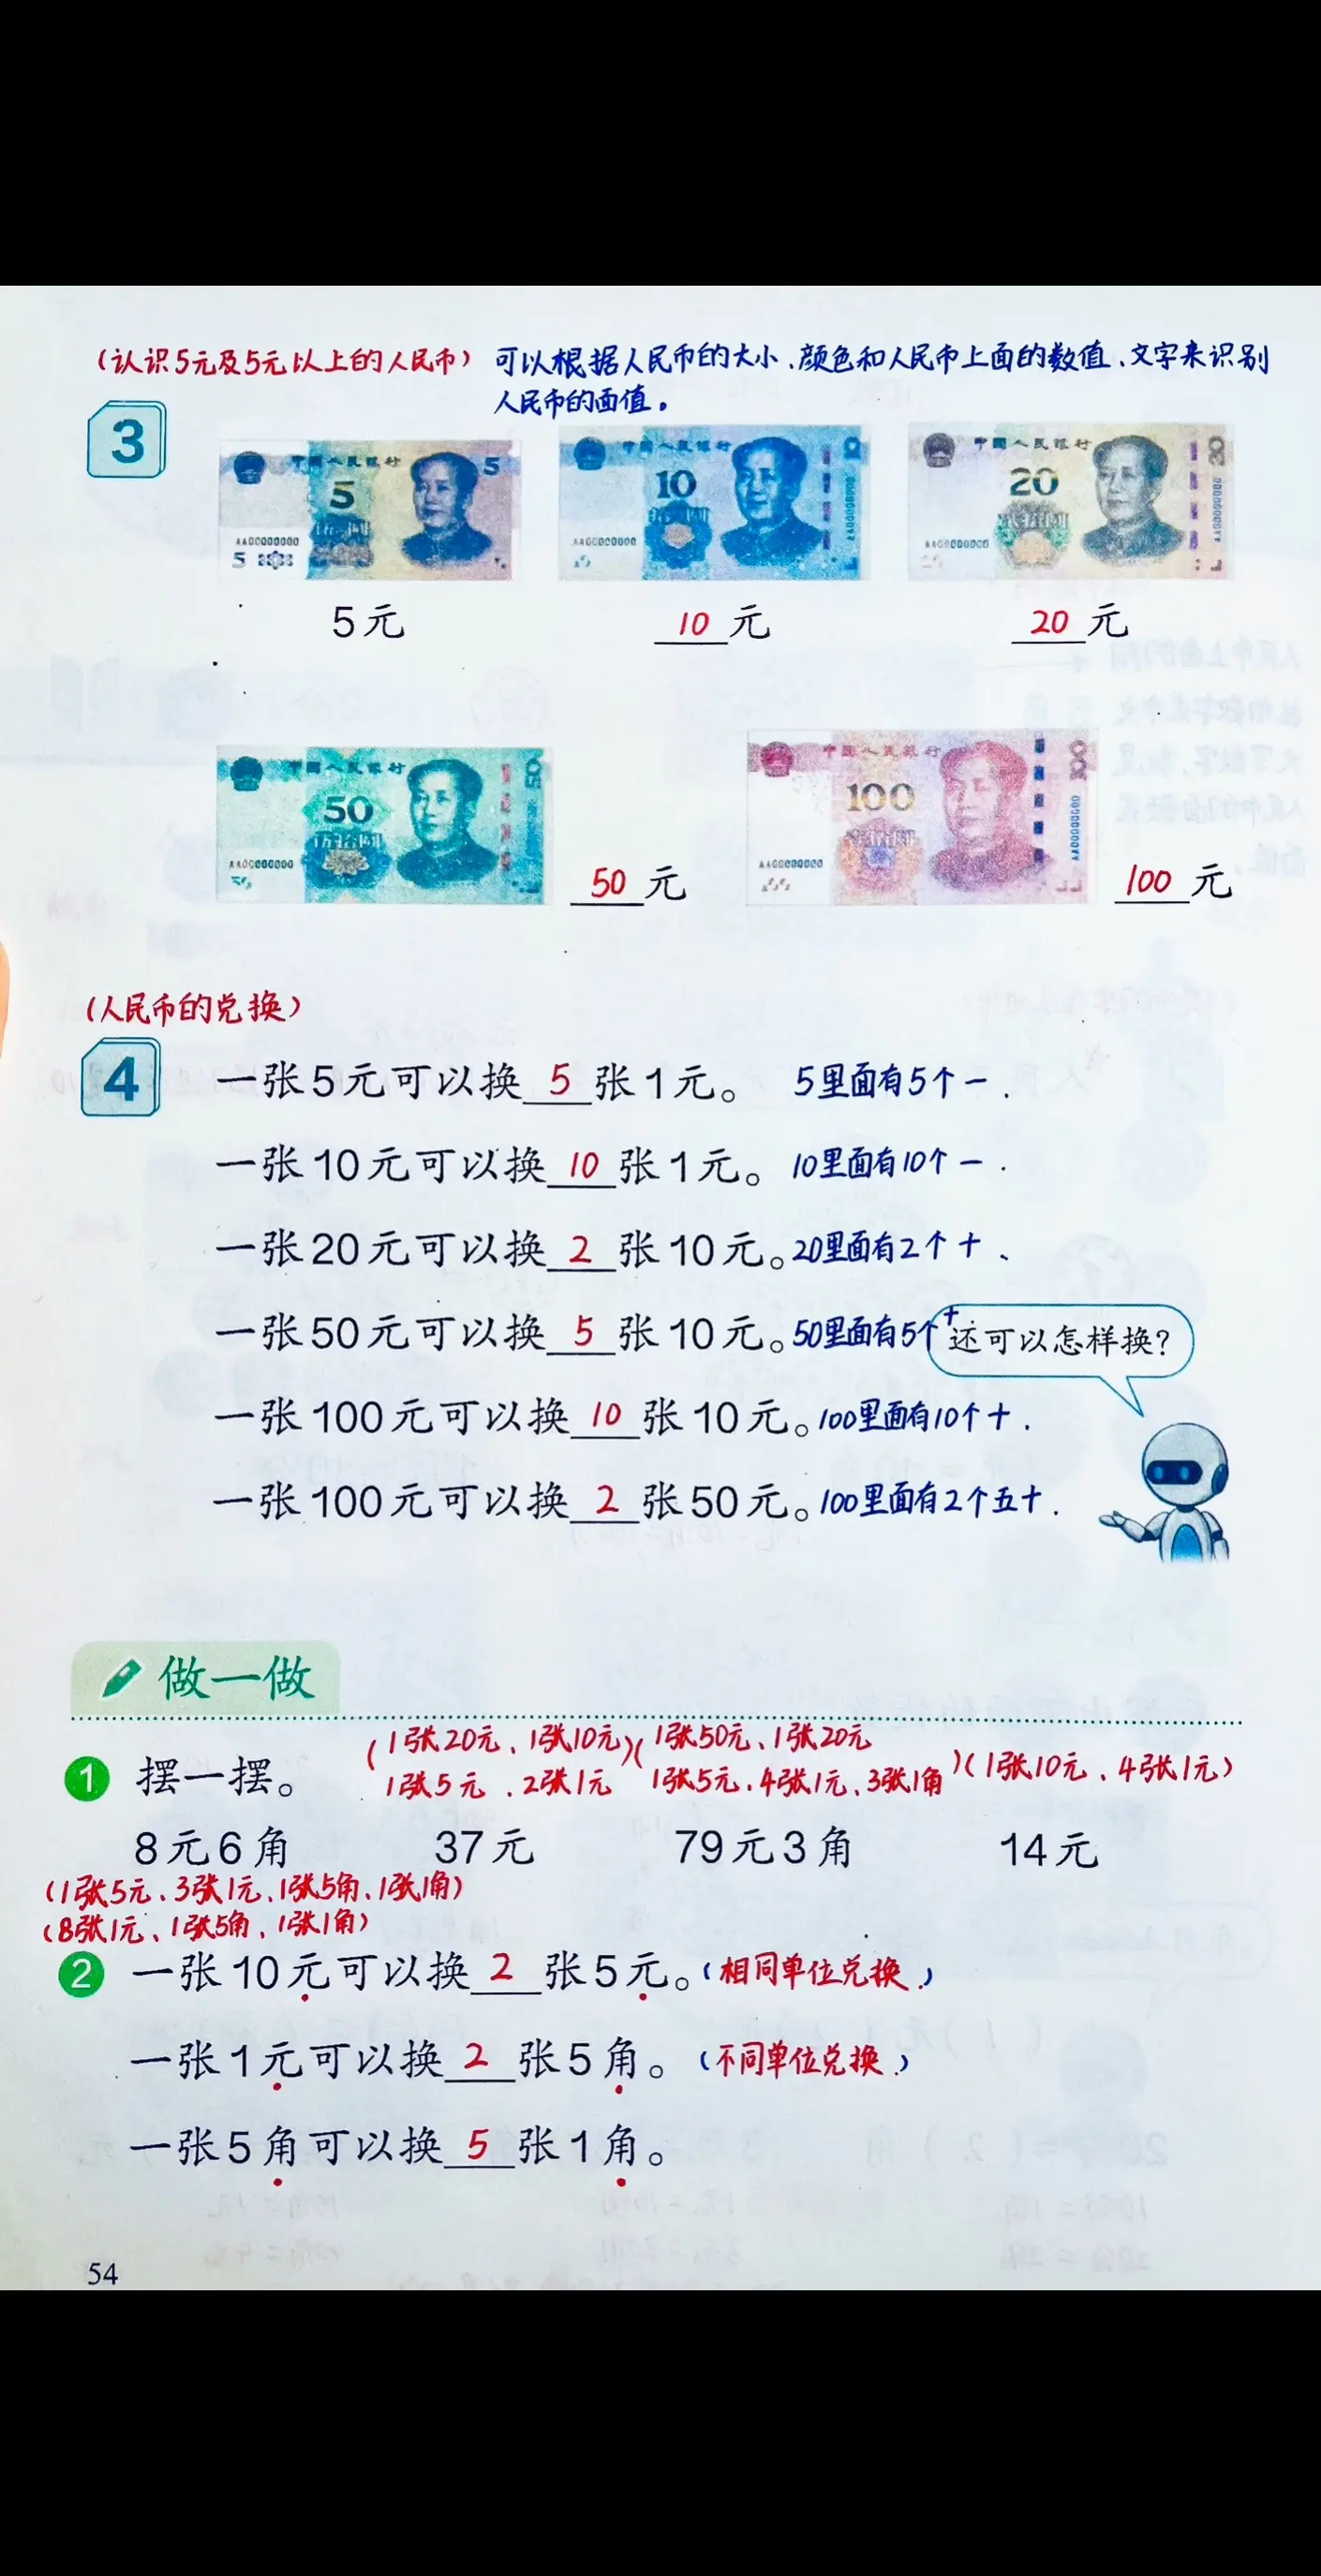 (认识5元及5元以上的人民币) 可以根据人民币的大小、颜色和人民币上面的数值、文字来识别
人民币的面值。
3
中国人民银行 5 5 AA00000000 5
中国人民银行 10 AA00000000
中国人民银行 20 AA00000000
5元 10元 20元
中国人民银行 50 AA00000000
中国人民银行 100 AA00000000
50元 100元
(人民币的兑换)
4 一张5元可以换5张1元。 5里面有5个一.
一张10元可以换10张1元。 10里面有10个一.
一张20元可以换2张10元。20里面有2个十、
一张50元可以换5张10元。50里面有5个十
还可以怎样换?
一张100元可以换10张10元。100里面有10个十.
一张100元可以换2张50元。100里面有2个五十.
做一做
(1张20元、1张10元)(1张50元、1张20元
1 摆一摆。 1张5元、2张1元 1张5元、4张1元、3张1角)(1张10元、4张1元)
8元6角 37元 79元3角 14元
(1张5元、3张1元、1张5角、1张1角)
(8张1元、1张5角、1张1角)
2 一张10元可以换2张5元。(相同单位兑换.)
一张1元可以换2张5角。(不同单位兑换.)
一张5角可以换5张1角。
54